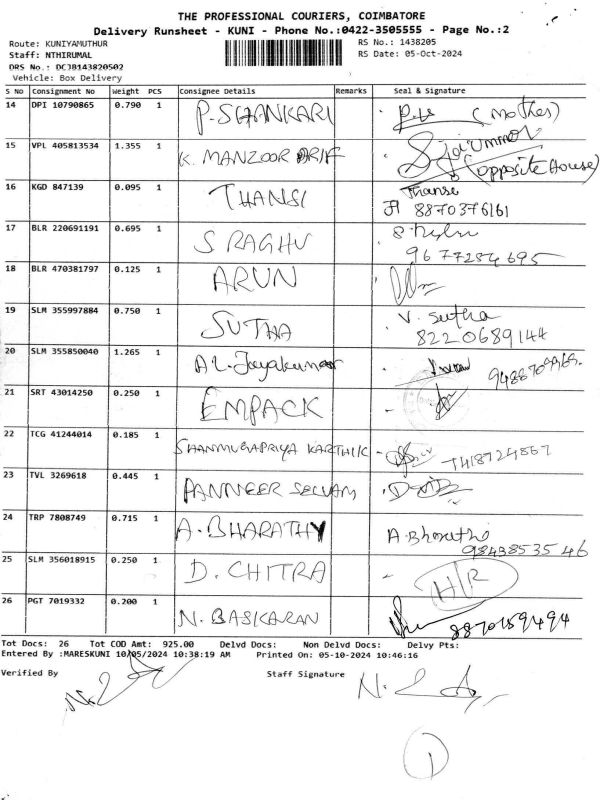 THE PROFESSIONAL COURIERS, COIMBATORE
Delivery Runsheet - KUNI - Phone No.:0422-3505555 - Page No.:2
Route: KUNIYAMUTHUR RS No.: 1438205
Staff: NTHIRUMAL RS Date: 05-Oct-2024
DRS No.: DCJB143820502
Vehicle: Box Delivery
S No Consignment No Weight PCS Consignee Details Remarks Seal & Signature
14 DPI 10790865 0.790 1 P. SHANKARI (Mother)
15 VPL 405813534 1.355 1 K. MANZOOR ARIF (opposite House)
16 KGD 847139 0.095 1 THANSI Thansi
8870376161
17 BLR 220691191 0.695 1 S RAGHU
9677284695
18 BLR 470381797 0.125 1 ARUN
19 SLM 355997884 0.750 1 SUTHA V. Sutha
8220689144
20 SLM 355850040 1.265 1 AL. Jayakumar
21 SRT 43014250 0.250 1 EMPACK
22 TCG 41244014 0.185 1 SHANMUGAPRIYA KARTHIK
23 TVL 3269618 0.445 1 PANNEER SELVAM
24 TRP 7808749 0.715 1 A. BHARATHY A. Bharathi
9843853546
25 SLM 356018915 0.250 1 D. CHITRA H/R
26 PGT 7019332 0.200 1 N. BASKARAN
8870159494
Tot Docs: 26 Tot COD Amt: 925.00 Delvd Docs: Non Delvd Docs: Delvy Pts:
Entered By :MARESKUNI 10/05/2024 10:38:19 AM Printed On: 05-10-2024 10:46:16
Verified By Staff Signature
1